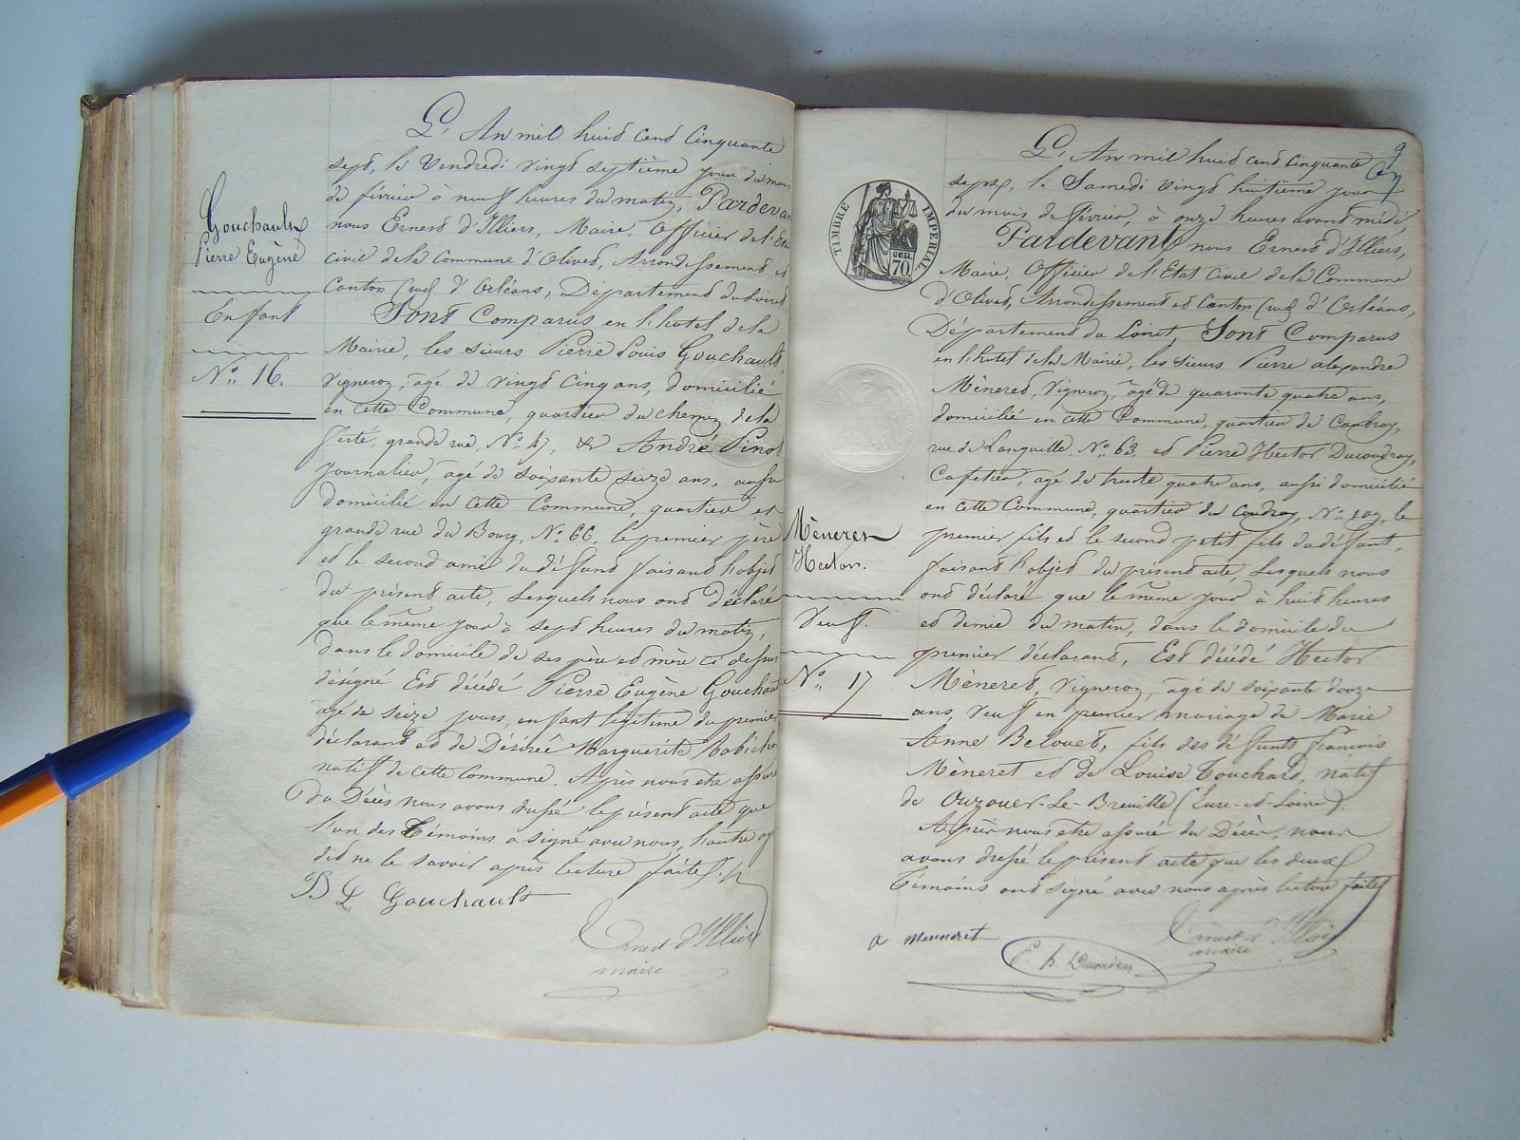 Gouchault
Pierre Eugène
Enfant
N° 16.
L'An mil huit cent Cinquante
sept, le Vendredi vingt septième jour du mois
de février à neuf heures du matin, Pardevant
nous Ernest d'Illiers, Maire, Officier de l'Etat
civil de la Commune d'Olivet, Arrondissement et
Canton Sud d'Orléans, Département du Loiret
Sont Comparus en l'hotel de la
Mairie, les sieurs Pierre Louis Gouchault,
Vigneron, âgé de vingt cinq ans, domicilié
en cette Commune, quartier du chemin de la
ferté, grande rue, N° 47, & André Pinot
Journalier, âgé de soixante seize ans, aussi
domicilié en cette Commune, quartier et
grande rue du Bourg, N° 66, le premier père
et le second ami du défunt faisant l'objet
du présent acte, Lesquels nous ont déclaré
que le même jour à sept heures du matin,
dans le domicile de ses père et mère ci dessus
désigné Est décédé Pierre Eugène Gouchault
âgé de seize jours, enfant légitime du premier
déclarant et de Désirée Marguerite
natif de cette Commune. Après nous etre assuré
du Décès nous avons dressé le présent acte que
l'un des Témoins à signé avec nous, l'autre ay
dit ne le savoir après lecture faite./.
P L Gouchault
Ernest d'Illiers
maire
9
TIMBRE IMPERIAL
70
Mèneret
Hector.
Veuf.
N° 17
L'An mil huit cent Cinquante
sept, le Samedi vingt huitième jour
du mois de février, à onze heures avant midi,
Pardevant nous Ernest d'Illiers,
Maire, Officier de l'Etat Civil de la Commune
d'Olivet, Arrondissement et Canton Sud d'Orléans,
Département du Loiret, Sont Comparus
en l'hotel de la Mairie, les sieurs Pierre alexandre
Mèneret, Vigneron, âgé de quarante quatre ans,
domicilié en cette Commune, quartier de Couasnon,
rue de N° 63, et Pierre Hector Ducoudray,
Cafetier, âgé de trente quatre ans, aussi domicilié
en cette Commune, quartier du Coudray, N° le
premier fils et le second petit fils du défunt,
faisant l'objet du présent acte, Lesquels nous
ont déclaré que le même jour à huit heures
et demie du matin, dans le domicile du
premier déclarant, Est décédé Hector
Mèneret, Vigneron, âgé de soixante douze
ans, Veuf en premier mariage de Marie
Anne Belouet, fils des défunts françois
Mèneret et de Louise Touchard, natif
de Ouzouer-Le-Breuille (Eure-et-Loire).
Après nous etre assuré du Décès, nous
avons dressé le présent acte que les deux
Témoins ont signé avec nous après lecture faite
a menneret
P h
Ernest d'Illiers
maire